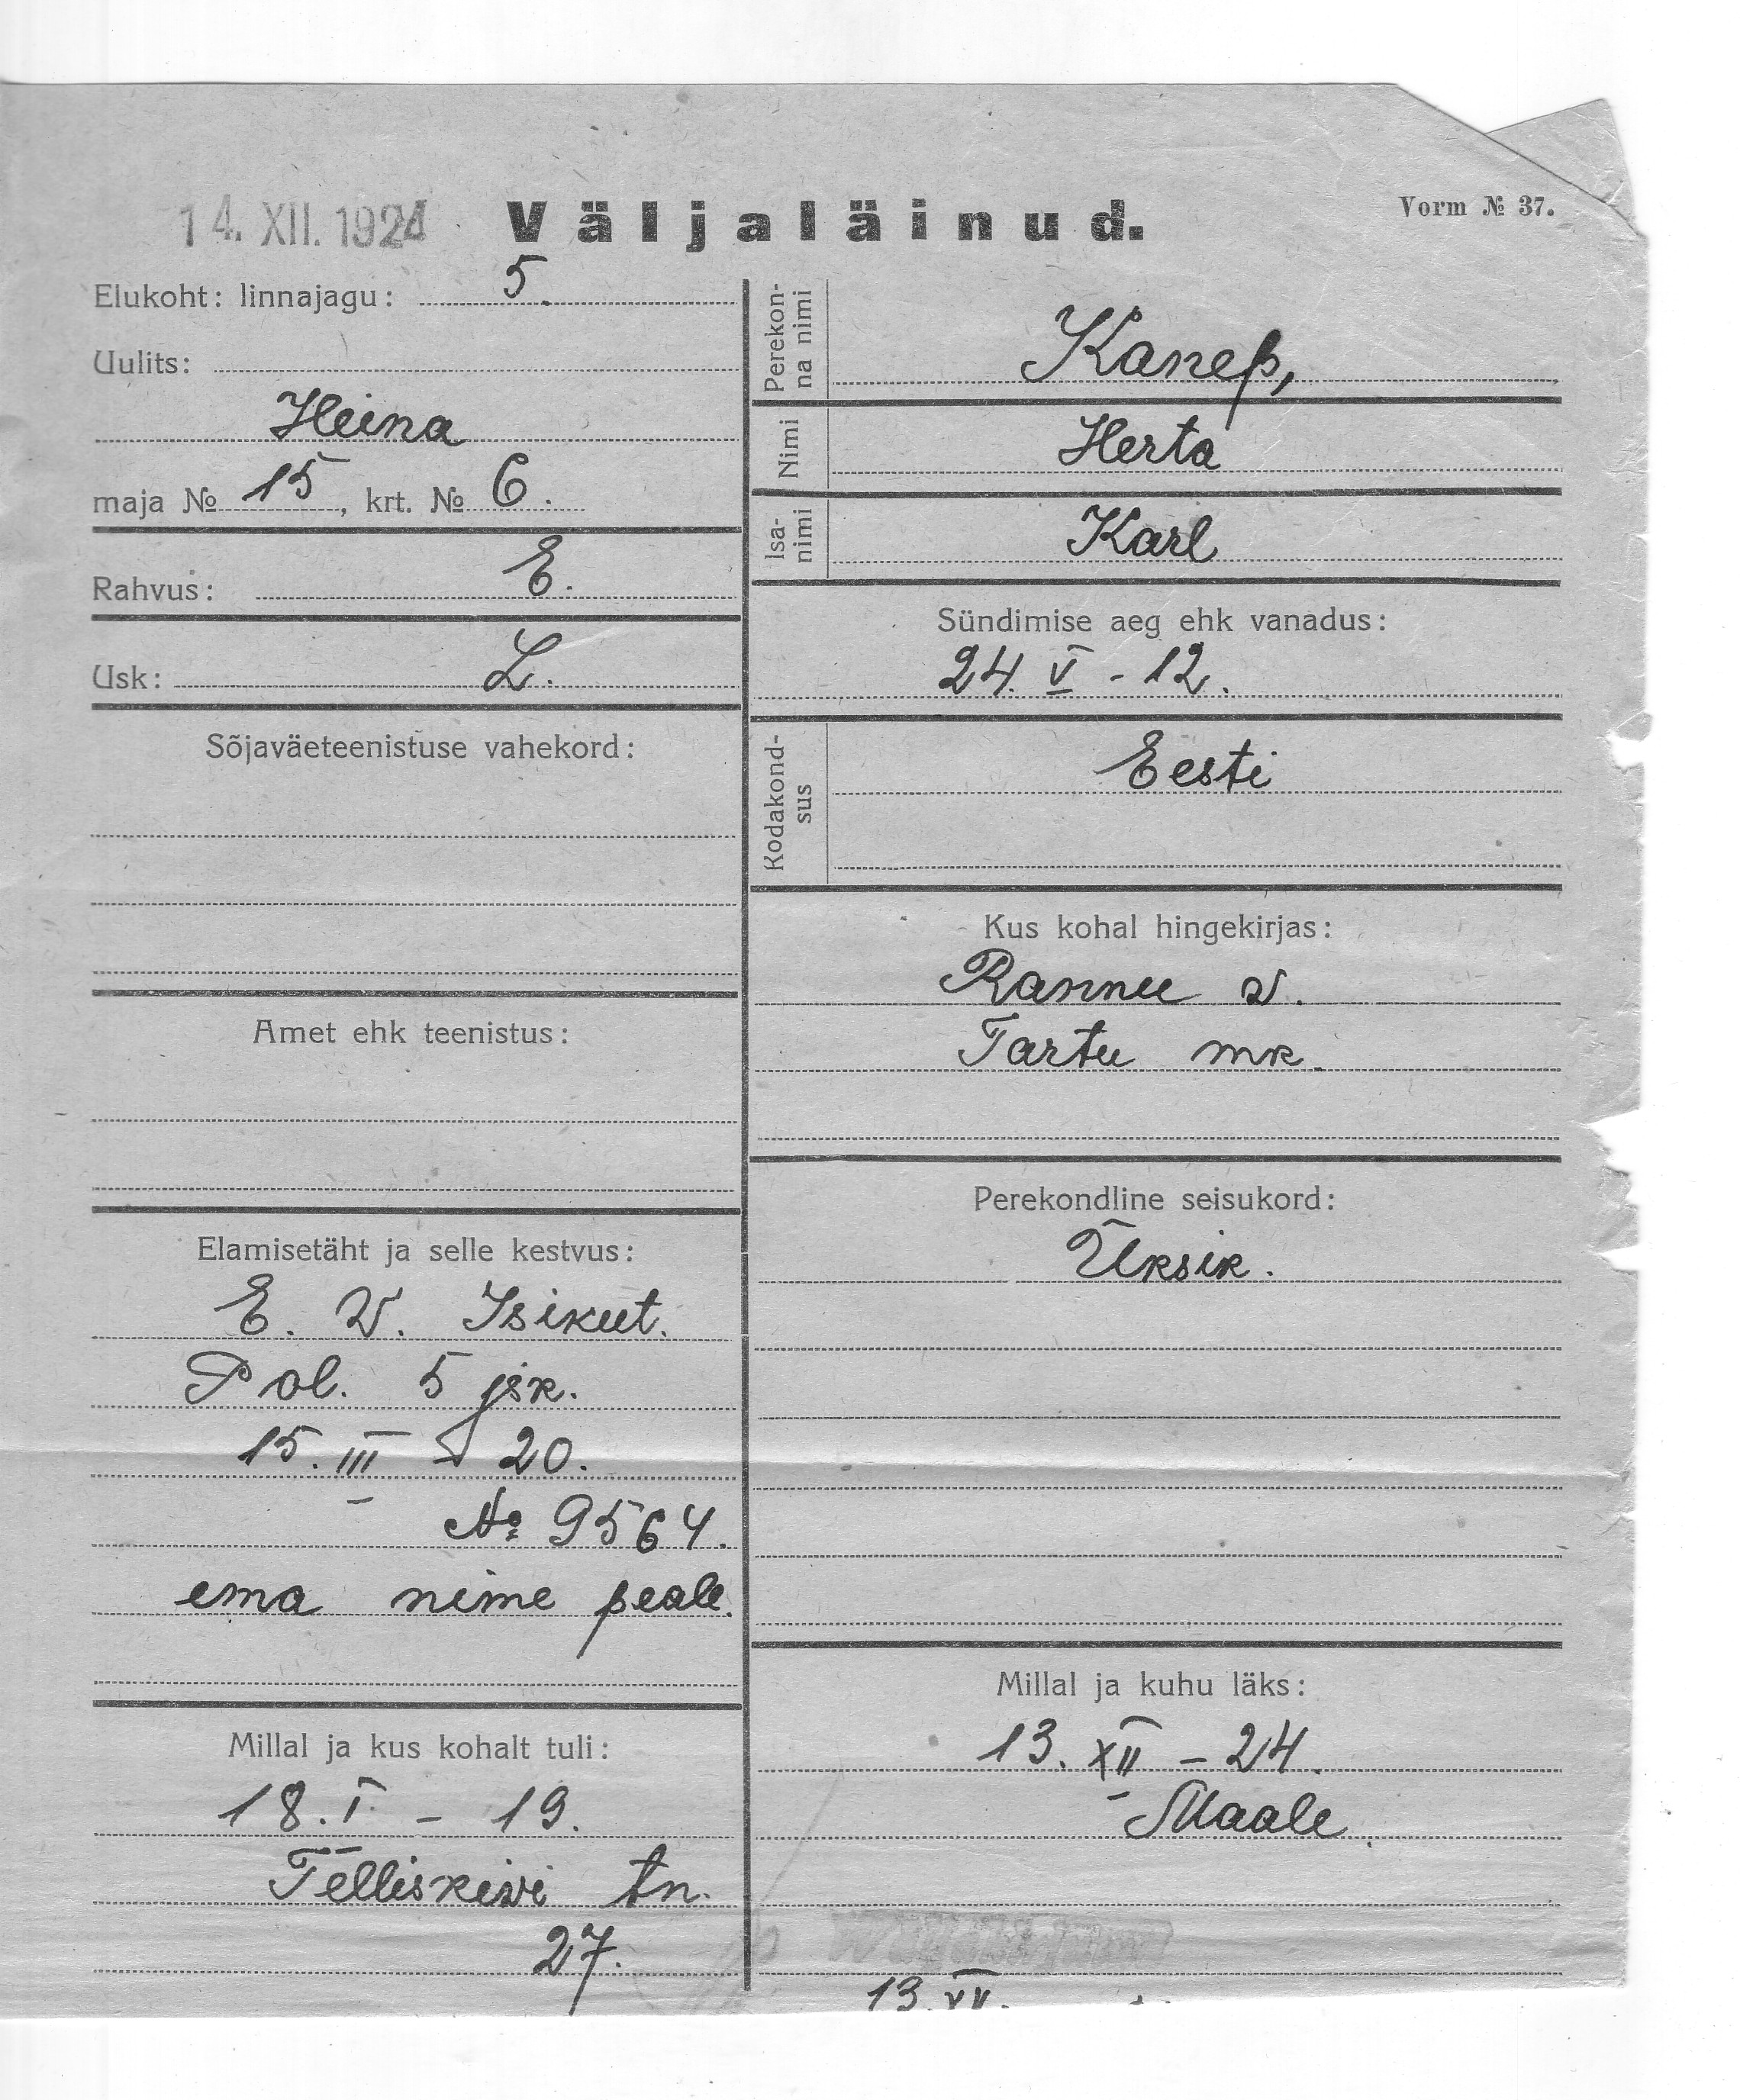 14. XII. 1924 Väljaläinud.
Vorm № 37.
Elukoht: linnajagu: 5.
Uulits:
Heina
maja № 15, krt. № 6.
Rahvus: E.
Usk: L.
Sõjaväeteenistuse vahekord:
Amet ehk teenistus:
Elamisetäht ja selle kestvus:
E. W. Isikut.
Pol. 5 jsk.
15. III - 20.
№ 9564.
ema nime peale.
Millal ja kus kohalt tuli:
18. I - 19.
Telliskiwi tn.
27.
Perekon-
na nimi
Kanep,
Nimi Herta
Isa-
nimi
Karl
Sündimise aeg ehk vanadus:
24. V - 12.
Kodakond-
sus
Eesti
Kus kohal hingekirjas:
Rannu w.
Tartu mk.
Perekondline seisukord:
Üksik.
Millal ja kuhu läks:
13. XII - 24.
Maale.
13. XII.